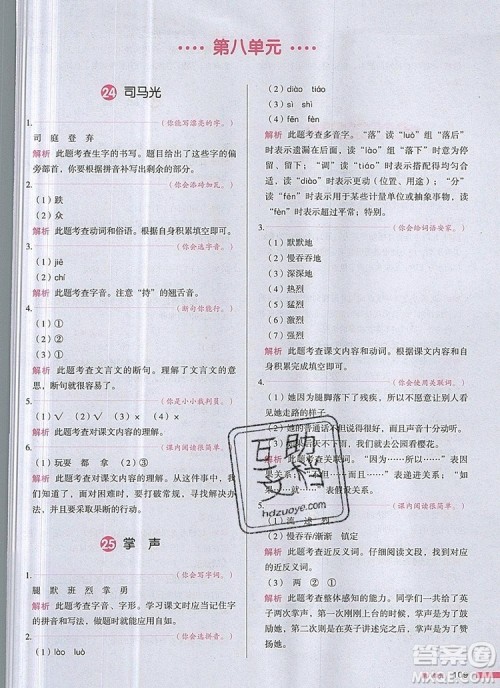 第八单元
24 司马光
1. (你能写漂亮的字。)
司 庭 登 弃
解析 此题考查生字的书写。题目给出了这些字的偏
旁部首，要根据拼音补写出剩余的部分。
2. (你会添砖加瓦。)
(1) 跌
(2) 众
解析 此题考查动词和俗语。根据自身积累填空即可。
3. (你会选字音。)
(1) jiē
(2) chí
解析 此题考查字音。注意“持”的翘舌音。
4. (断句你能行。)
(1) ①
(2) ①
解析 此题考查文言文的断句，理解了文言文的意
思，断句就很容易。
5. (你是小小裁判员。)
(1) × (2) √ (3) √ (4) ×
解析 此题考查对课文内容的理解。
6. (课内阅读很简单。)
(1) 玩耍 都 拿 (2) ③
解析 此题考查对课文内容的理解。从这件事情中，
我们可以体会到，面对困难时，我们要沉着冷静，
并且要采取果断的行动。
25 掌 声
1. (你会写字词。)
腿 默 班 烈 掌 勇
解析 此题考查字音、字形。学习课文时应当记住字
的拼音和写法，并加以巩固。
2. (你会选拼音。)
(1) lào luò
(2) diào tiáo
(3) fèn fēn
解析 此题考查多音字。“落”读“luò”组“落后”
时表示遗漏在后面，读“lào”组“落脚”时表示
停留、留下；“调”读“tiáo”时表示配合得均匀合
适，读“diào”时表示更动、更换（位置、作用、
人员）；“分”读“fēn”时表示计量单位或抽象事物，
读“fèn”时表示超过平常。
3. (你会给词语安家。)
(1) 默默地
(2) 慢吞吞地
(3) 深深地
(4) 热烈
(5) 猛烈
(6) 激烈
(7) 强烈
解析 此题考查课文内容和动词。根据课文内容和自
身积累完成填空即可。
4. (你会使用关联词。)
(1) 她因为腿脚落下了残疾，所以不愿意别人看
见她走路的样子。
(2) 她的普通话不但很好，而且声音十分动听。
解析 此题考查关联词。
5. (课内阅读很简单。)
(2) 慢吞吞/渐渐 镇定
解析 此题考查近反义词。仔细阅读文段，找出近反
义词即可。
(3) 两 ② ①
解析 此题考查整体感知的能力。同学们一共给了英
子两次掌声，第一次刚刚上台，掌声是为了鼓励
她，第二次则是在英子讲述完之后，掌声是为了赞
扬她。
hdzuoye.com